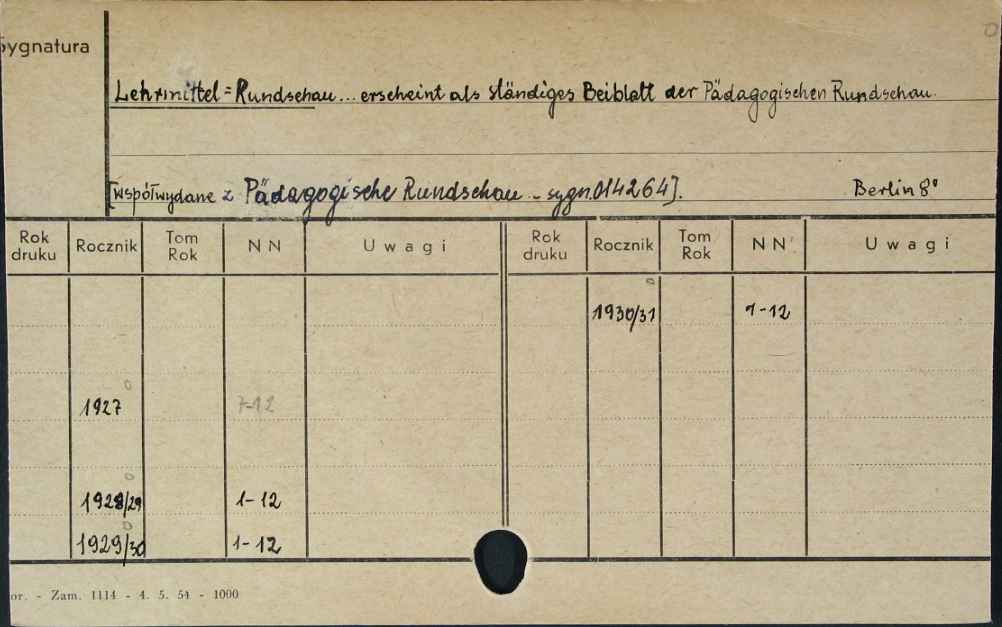 Sygnatura
Lehrmittel=Rundschau... erscheint als ständiges Beiblatt der Pädagogischen Rundschau.
[współwydane z Pädagogische Rundschau - sygn. 014264].
Berlin 8°
Rok druku Rocznik Tom Rok N N Uwagi Rok druku Rocznik Tom Rok N N Uwagi
1930/31 1-12
1927 7-12
1928/29 1-12
1929/30 1-12
or. - Zam. 1114 - 4. 5. 54 - 1000